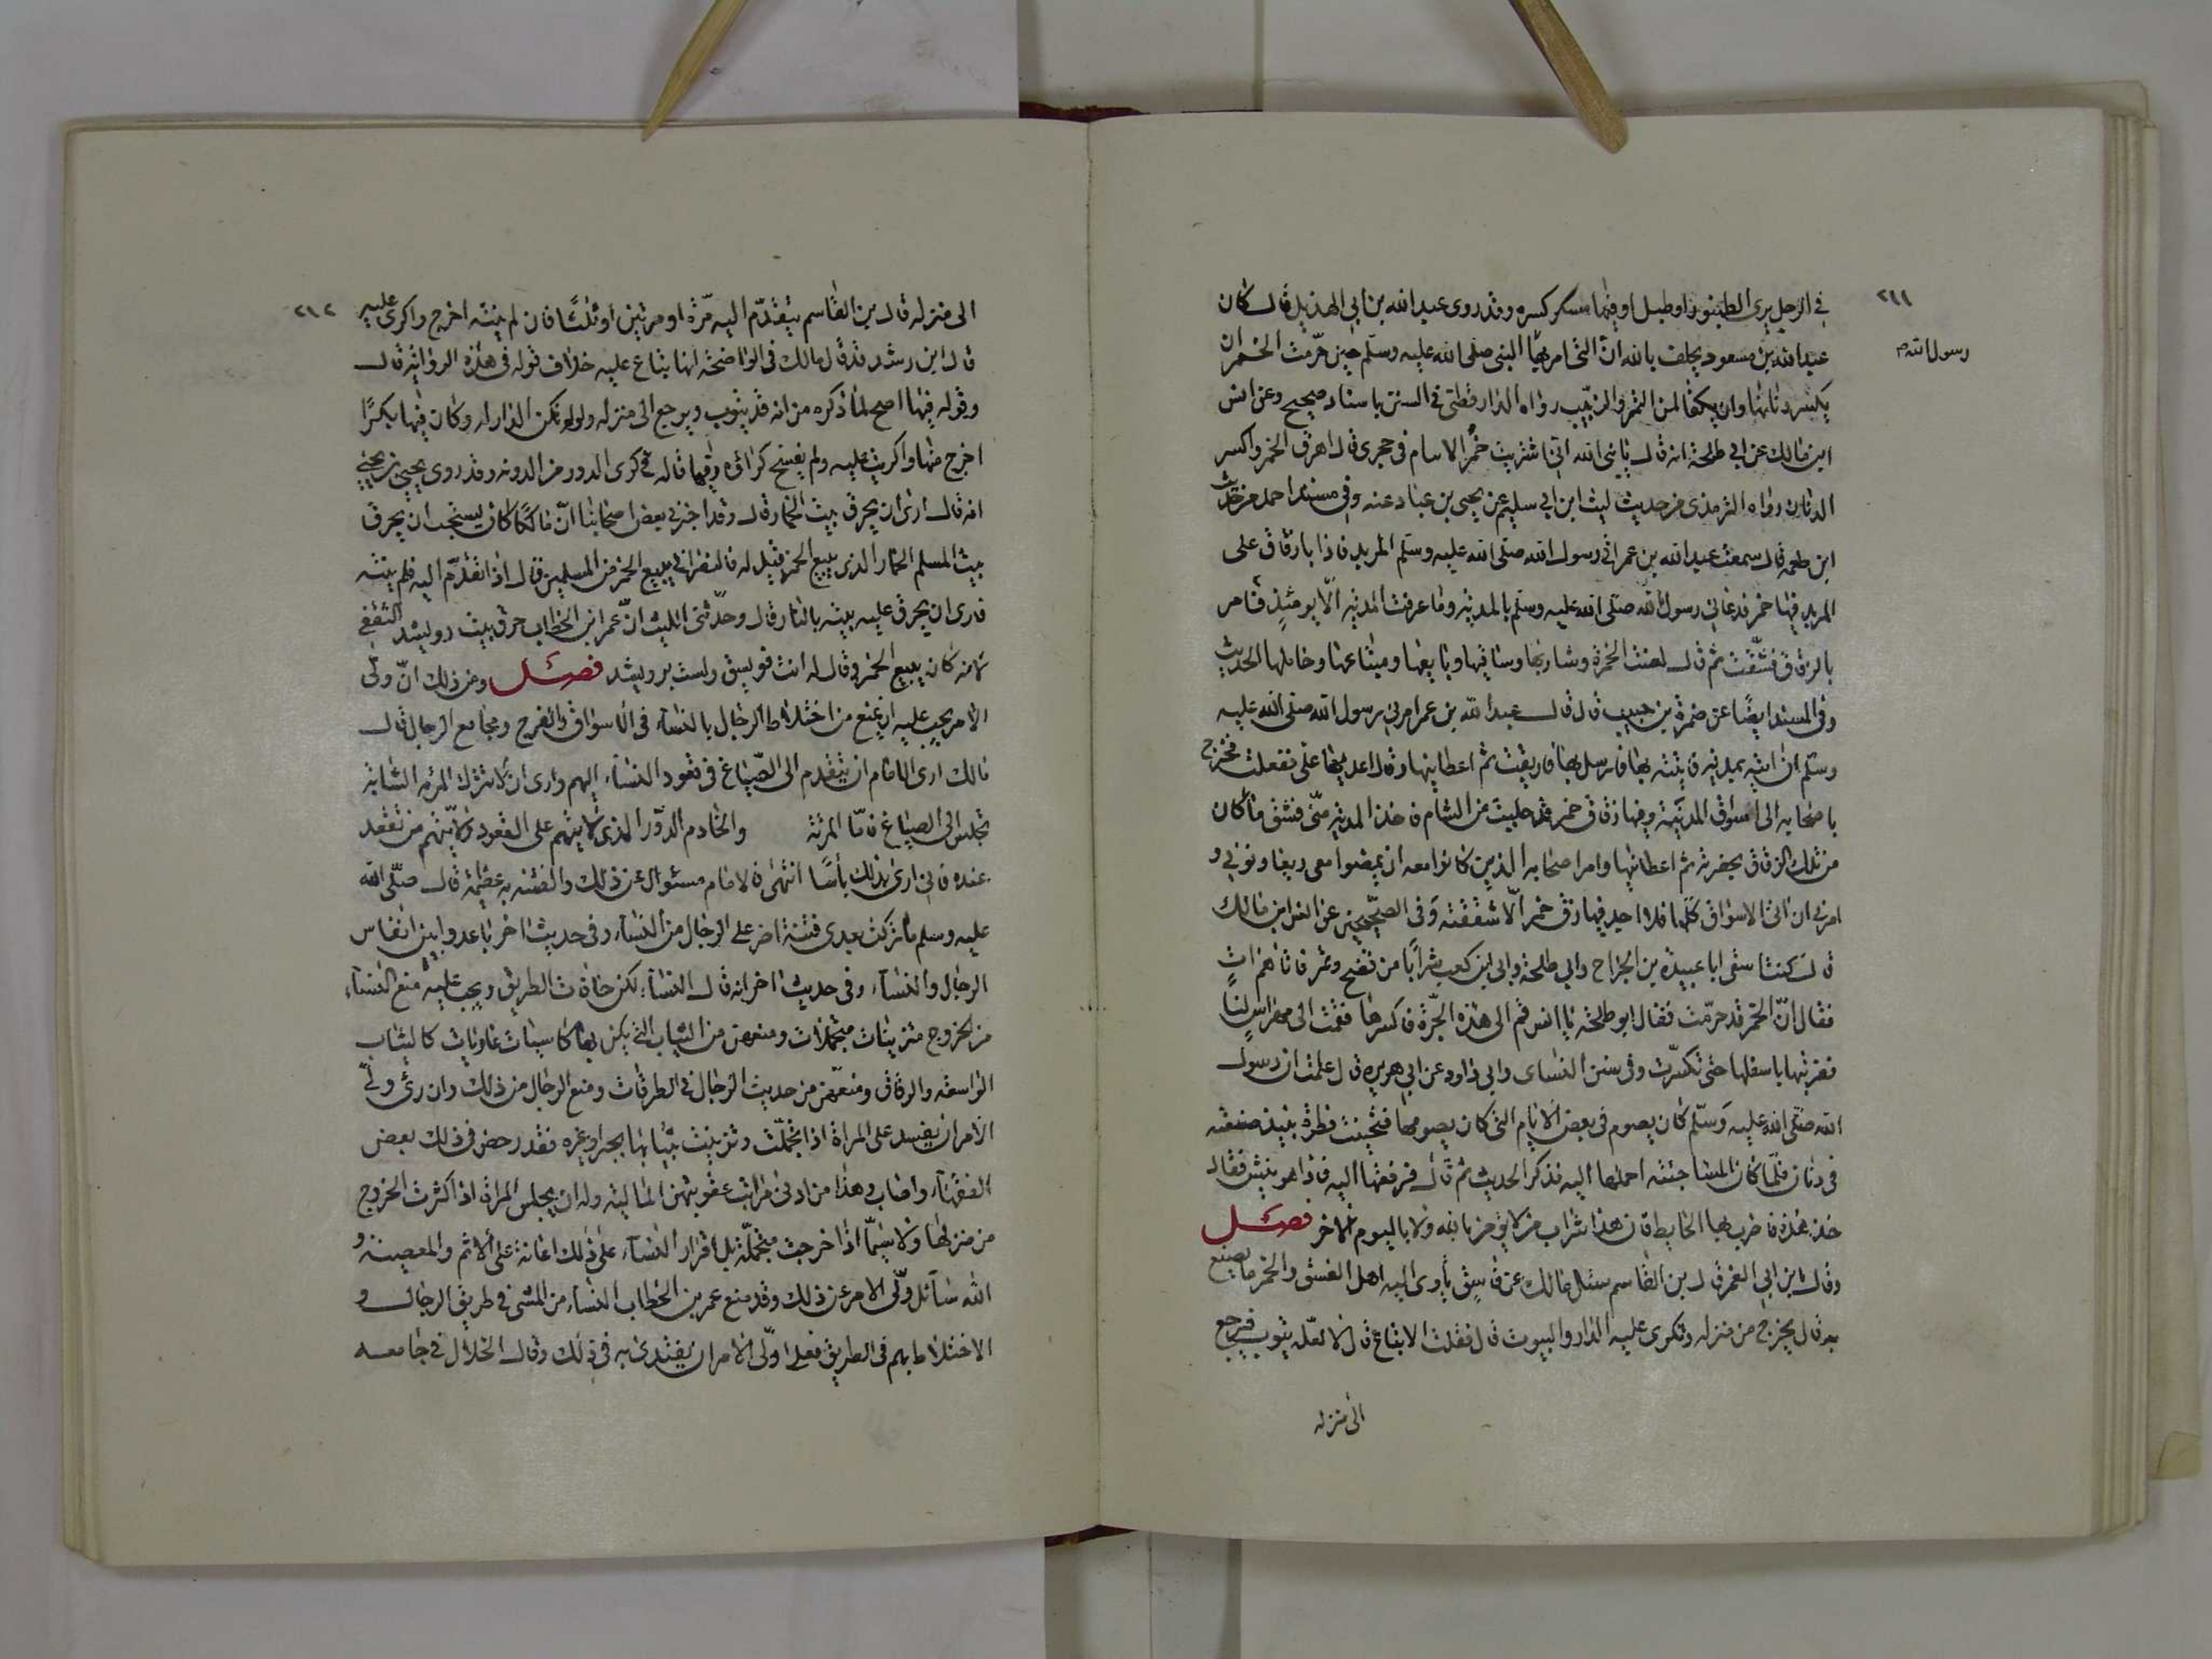 ٢١١
في الرجل يرى الطنبور او طبل او فيها مسكر كسره وقد روى عبد الله بن ابي الهذيل قال كان
رسول الله م
عبد الله بن مسعود يحلف بالله ان التي امر بها النبي صلى الله عليه وسلم حين حرّمت الخمر ان
يكسر دنانها وان يكفأ لمن التمر والزبيب رواه الدارقطني في السنن باسناد صحيح وعن انس
ابن مالك عن ابي طلحة انه قال يا نبي الله اني اشتريت خمر الايتام في حجري قال اهرق الخمر واكسر
الدنان رواه الترمذي من حديث ليث ابن ابي سليم عن يحيى بن عباد عنه وفي مسند احمد من حديث
ابن طعمه قال سمعت عبد الله بن عمر اتى رسول الله صلى الله عليه وسلم المربد فاذا بازقاق على
المربد فيها خمر فدعاني رسول الله صلى الله عليه وسلم بالمدية وما عرفت المدية الا يومئذ فامر
بالزقاق فشقّت ثم قال لعنت الخمرة وشاربها وساقيها وبايعها ومبتاعها وحاملها الحديث
وفي المسند ايضًا عن ضمرة بن حبيب قال قال عبد الله بن عمر امرني رسول الله صلى الله عليه
وسلم ان اتيه بمدية فاتيته بها فارسل بها فارهفت ثم اعطانيها وقال اغد بها علي ففعلت فخرج
باصحابه الى اسواق المدينة وفيها زقاق خمر قد جلبت من الشام فاخذ المدية منّي فشق ما كان
من تلك الزقاق بحضرته ثم اعطانيها وامر اصحابه الذين كانوا معه ان يمضوا معي ويعاونوني و
امرني ان اتى الاسواق كلّها فلا اجد فيها زق خمر الّا شققته وفي الصحيحين عن انس ابن مالك
قال كنت اسقى ابا عبيدة بن الجراح وابي طلحة وابي ابن كعب شرابًا من فضيخ وتمر فاتاهم ات
فقال انّ الخمر قد حرّمت فقال ابو طلحة يا انس قم الى هذه الجرّة فاكسرها فقمت الى مهراس لنا
فضربتها باسفلها حتى تكسّرت وفي سنن النساى وابي داود عن ابي هريره قال علمت ان رسول
الله صلى الله عليه وسلّم كان يصوم في بعض الايام التي كان يصومها فتحينت فطره بنبيذ صنعته
في دنان فلمّا كان المسا جئته احملها اليه فذكر الحديث ثم قال فرفعتها اليه فاذا هو ينش فقال
خذ هذه فاضرب بها الحايط فان هذا شراب من لا يؤمن بالله ولا باليوم الاخر فصـل
وقال ابن ابي الغمر قال بن القاسم سئل مالك عن فاسق ياوى اليه اهل الفسق والخمر ما يصنع
به قال يخرج من منزله وتكرى عليه الدار والبيوت قال فقلت الا تباع قال لا لعله يتوب فيرجع
الى منزله
٢١٢
الى منزله قال بن القاسم يتقدّم اليه مرّة او مرتين او ثلثًا فان لم ينته اخرج واكرى عليه
قال ابن رشد قد قال مالك في الواضحة انها تباع عليه خلاف قوله في هذه الرواية قال
وقوله فيها اصح لما ذكره من انه قد يتوب ويرجع الى منزله ولو لم تكن الدار له وكان فيها بكرًا
اخرج منها واكريت عليه ولم يفسخ كراؤه وفيها قاله في كرى الدور من المدونه وقد روى يحيى بن يحيى
انه قال ارى ان يحرق بيت الخمار قال وقد اخبرني بعض اصحابنا انّ مالكًا كان يستحب ان يحرق
بيت المسلم الخمار الذي يبيع الخمر قيل له فالنصراني يبيع الخمر من المسلمين قال اذا تقدّم اليه فلم ينته
فارى ان يحرق عليه بيته بالنار قال وحدّثني الليث انّ عمر ابن الخطاب حرق بيت رويشد الثقفي
لانه كان يبيع الخمر وقال له انت فويسق ولست برويشد فصـل ومن ذلك انّ ولّى
الامر يجب عليه ان يمنع من اختلاط الرجال بالنساء في الاسواق والفرج ومجامع الرجال قال
مالك ارى للامام ان يتقدم الى الصّياغ في قعود النساء اليهم وارى ان لا تترك المرئه الشابة
تجلس الى الصياغ فامّا المرئة والخادم الدّور الذي لا يتهم على القعود ولا يتّهم من تقعد
عنده فاني ارى بذلك بأسًا انتهى فالامام مسئول عن ذلك والفتنه به عظيمة قال صلّى الله
عليه وسلم ما تركت بعدى فتنة اضر على الرجال من النساء وفي حديث اخر باعدوا بين انفاس
الرجال والنساء وفي حديث اخر انه قال النساء لكن حافات الطريق ويجب عليه منع النساء
من الخروج متزينات متجملات ومنعهن من الثياب التي يكن بها كاسيات عاريات كالثياب
الواسعه والرقاق ومنعهن من حديث الرجال في الطرقات ومنع الرجال من ذلك وان رئ ولّى
الامر ان يفسد على المراة اذا تجملت وتزينت ثيابها بحبر وغيره فقد رخص في ذلك بعض
الفقهاء واصاب وهذا من ادنى مراتب عقوبتهن المالية وله ان يحبس المراة اذا اكثرت الخروج
من منزلها ولا سيّما اذا خرجت متجملّة بل اقرار النساء على ذلك اعانة على الاثم والمعصية و
الله سائل ولّى الامر عن ذلك وقد منع عمر بن الخطاب النساء من المشي في طريق الرجال و
الاختلاط بهم في الطريق فعلى اولّى الامر ان يقتدى به في ذلك وقال الخلال في جامعه